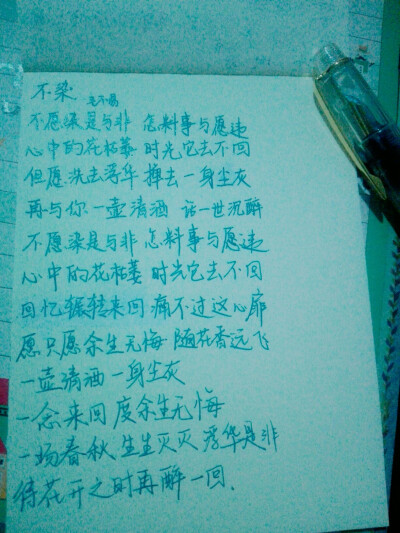 不染
毛不易
不愿染是与非 怎料事与愿违
心中的花枯萎 时光它去不回
但愿洗去浮华 掸去一身尘灰
再与你一壶清酒 话一世沉醉
不愿染是与非 怎料事与愿违
心中的花枯萎 时光它去不回
回忆辗转来回 痛不过这心扉
愿只愿余生无悔 随花香远飞
一壶清酒 一身尘灰
一念来回 度余生无悔
一场春秋 生生灭灭 浮华是非
待花开之时再醉一回.